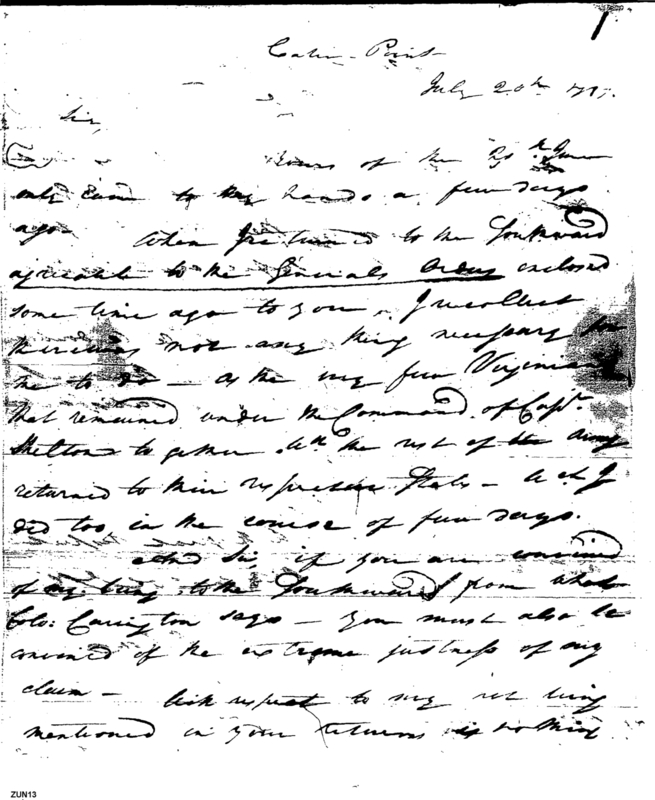 Cabin Point
July 20th 
Sir,
Yours of the 29th June
only came to my hands a few days
ago. When I returned to the Southward
agreeable to the Generals Orders enclosed
some time ago to you, I recollect
there was not any thing necessary for
me to do — as the very few Virginians
that remained under the Command of Capt.
Shelton together with the rest of the Army
returned to their respective States — as I
did too, in the course of few days.
And Sir, if you are convinced
of my being to the Southward from what
Colo: Carington says — you must also be
convinced of the extreme justness of my
claim — With respect to my not being
mentioned in your returns is nothing
ZUN13